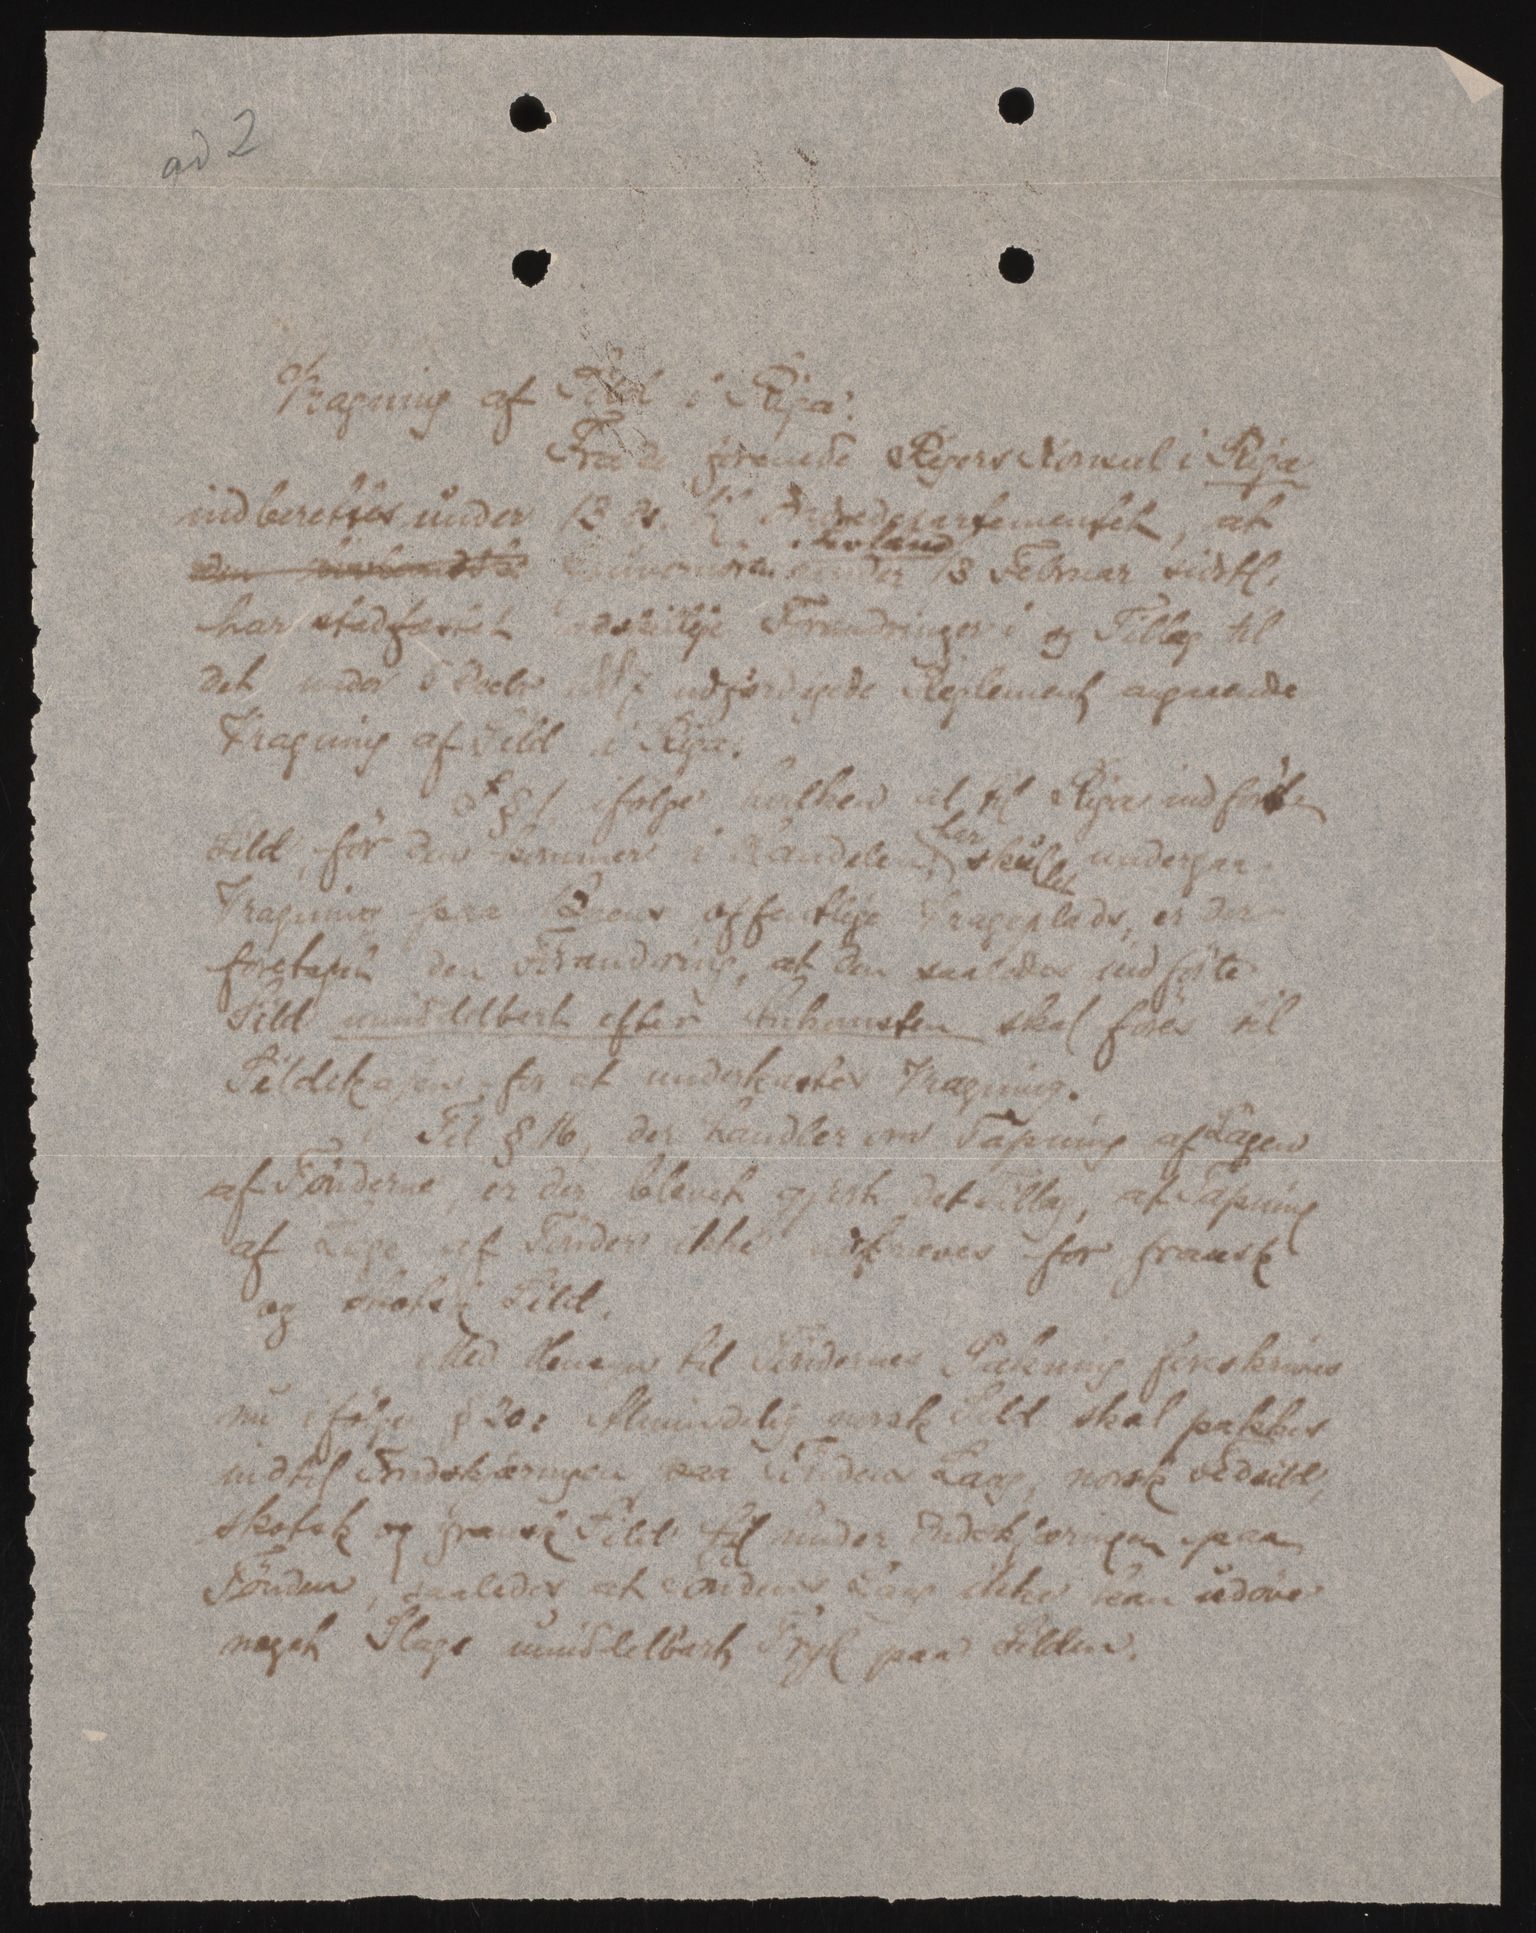 ad 2
Vragning af Sild i Riga.
Fra de forenede Rigers Konsul i Riga
indberettes under 13 ds. til Indredepartementet, at
Livland
den livlandske Guvernören under 13 Februar sidstl.
har stadfæstet adskillige Forandringer i og Tillæg til
det under 5 Decbr 1887 udfærdigede Reglement angaaende
Vragning af Sild i Riga.
I § 1, ifølge hvilken al til Riga indført
Sild, før den kommer i Handelen, har skullet undergaa
Vragning paa Byens offentlige Vrageplads, er der
foretaget den Forandring, at den saaledes indførte
Sild umiddelbart efter Ankomsten skal føres til
Sildekajen for at underkastes Vragning.
Til § 16, der handler om Tapning af Lagen
af Tønderne, er der blevet gjort det Tillæg, at Tapning
af Lage af Tønder ikke udkræves for fransk
og skotsk Sild.
Med Hensyn til Tøndernes Pakning foreskrives
nu ifølge § 20: Almindelig norsk Sild skal pakkes
indtil Indskjæringen paa Tøndens Laag, norsk Fedsild,
skotsk og fransk Sild til under Indskjæringen paa
Tønden, saaledes at Tøndens Laag ikke kan udøve
noget Slags umiddelbart Tryk paa Silden.